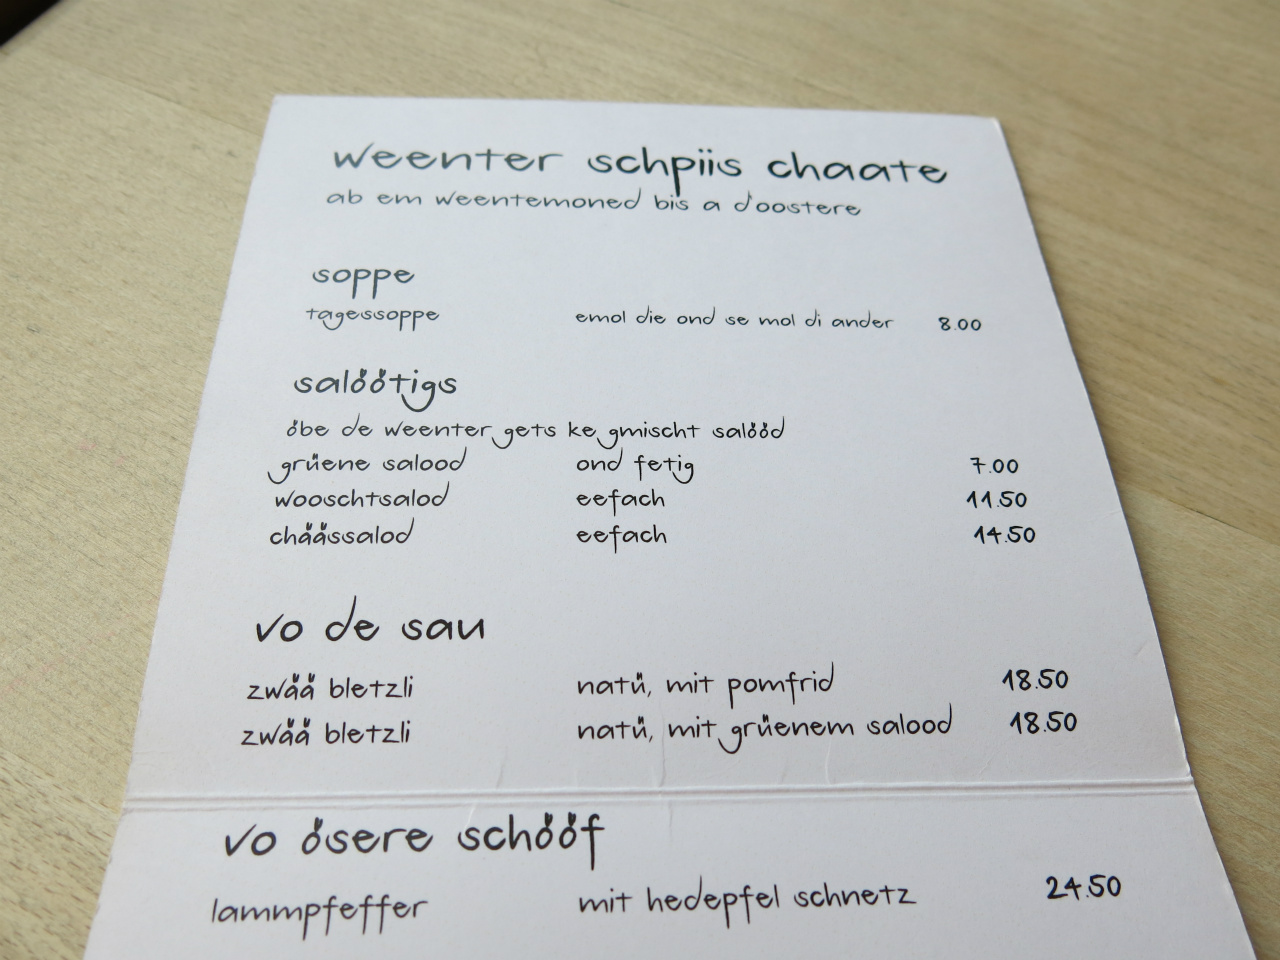 weenter schpiis chaate
ab em weentemoned bis a d'oostere
soppe
tagessoppe emol die ond se mol di ander 8.00
salöötigs
öbe de weenter gets ke gmischt salööd
grüene salood ond fetig 7.00
wooschtsalod eefach 11.50
chäässalod eefach 14.50
vo de sau
zwää bletzli natü, mit pomfrid 18.50
zwää bletzli natü, mit grüenem salood 18.50
vo ösere schööf
lammpfeffer mit hedepfel schnetz 24.50